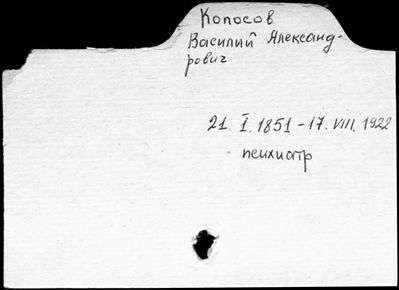 Копосов
Василий Александ-
рович
21. I. 1851 - 17. VIII. 1922
психиатр